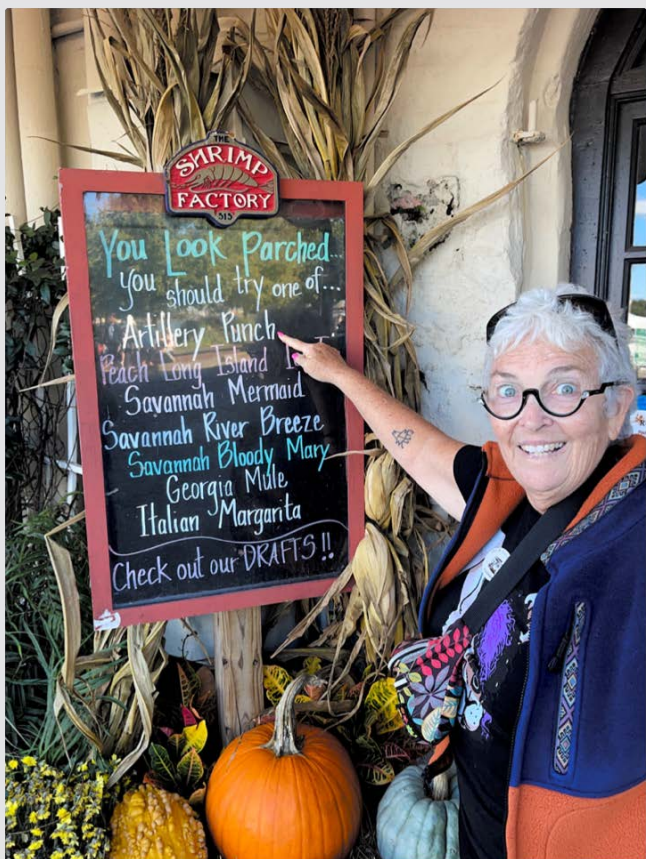 THE
SHRIMP
FACTORY
313
You Look Parched...
You should try one of...
Artillery Punch
Peach Long Island
Savannah Mermaid
Savannah River Breeze
Savannah Bloody Mary
Georgia Mule
Italian Margarita
Check out our DRAFTS!!